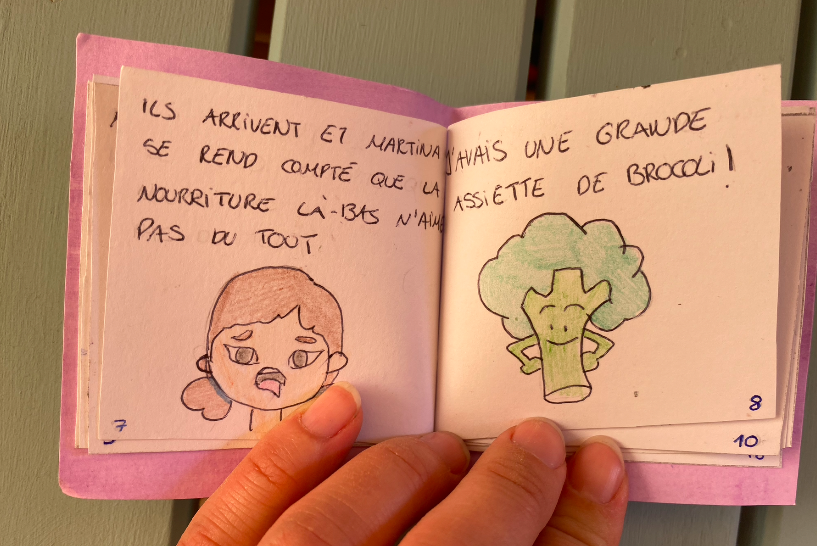 ILS ARRIVENT ET MARTINA
SE REND COMPTE QUE LA
NOURRITURE LÀ-BAS N'AIME
PAS DU TOUT.
7
J'AVAIS UNE GRANDE
ASSIETTE DE BROCOLI!
8
10